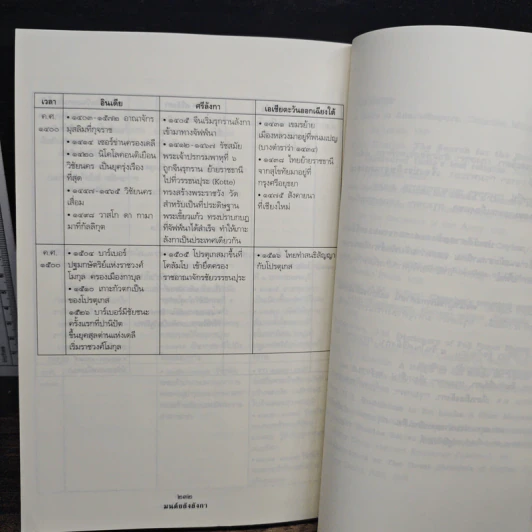 เวลา
อินเดีย
ศรีลังกา
เอเชียตะวันออกเฉียงใต้
ค.ศ.
๑๔๐๐
• ๑๔๐๓-๑๕๗๒ อาณาจักร
มุสลิมที่กุจราช
• ๑๔๑๔ เซอร์ข่านครองเดลี
• ๑๔๒๐ นิโคโลคอนติเยือน
วิชัยนคร เป็นยุครุ่งเรือง
ที่สุด
วิชัยนคร
เสื่อม
• ๑๔๙๘ วาสโก ดา กามา
มาที่กัลลิกุต
• ๑๔๐๕ จีนเริ่มรุกรานลังกา
เข้ามาทางจัฟฟ์นา
• ๑๔๑๒-๑๔๖๗ รัชสมัย
พระเจ้าปรกรมพาหุที่ ๖
ถูกจีนรุกราน ย้ายราชธานี
ไปที่วรรชนปุระ (Kotte)
ทรงสร้างพระราชวัง วัด
สำหรับเป็นที่ประดิษฐาน
พระเขี้ยวแก้ว ทรงปราบกบฏ
ที่จัฟฟ์นาได้สำเร็จ ทำให้เกาะ
ลังกาเป็นประเทศเดียวกัน
• ๑๔๓๑ เขมรย้าย
เมืองหลวงมาอยู่ที่พนมเปญ
(บางตำราว่า ๑๔๓๔)
• ๑๔๓๘ ไทยย้ายราชธานี
จากสุโขทัยมาอยู่ที่
กรุงศรีอยุธยา
• ๑๔๗๕ สังคายนา
ที่เชียงใหม่
ค.ศ.
๑๕๐๐
• ๑๕๐๔ บาร์เบอร์
ปฐมกษัตริย์แห่งราชวงศ์
โมกุล ครองเมืองกาบุล
• ๑๕๑๐ เกาะกัวตกเป็น
ของโปรตุเกส
๑๕๒๖ บาร์เบอร์มีชัยชนะ
ครั้งแรกที่ปานิปัต
สิ้นยุคสุลต่านแห่งเดลี
เริ่มราชวงศ์โมกุล
• ๑๕๐๕ โปรตุเกสมาขึ้นที่
โคลัมโบ เข้ายึดครอง
ราชอาณาจักรชัยวรรชนปุระ
• ๑๕๑๖ ไทยทำสนธิสัญญา
กับโปรตุเกส
๒๓๒
มนต์ขลังลังกา